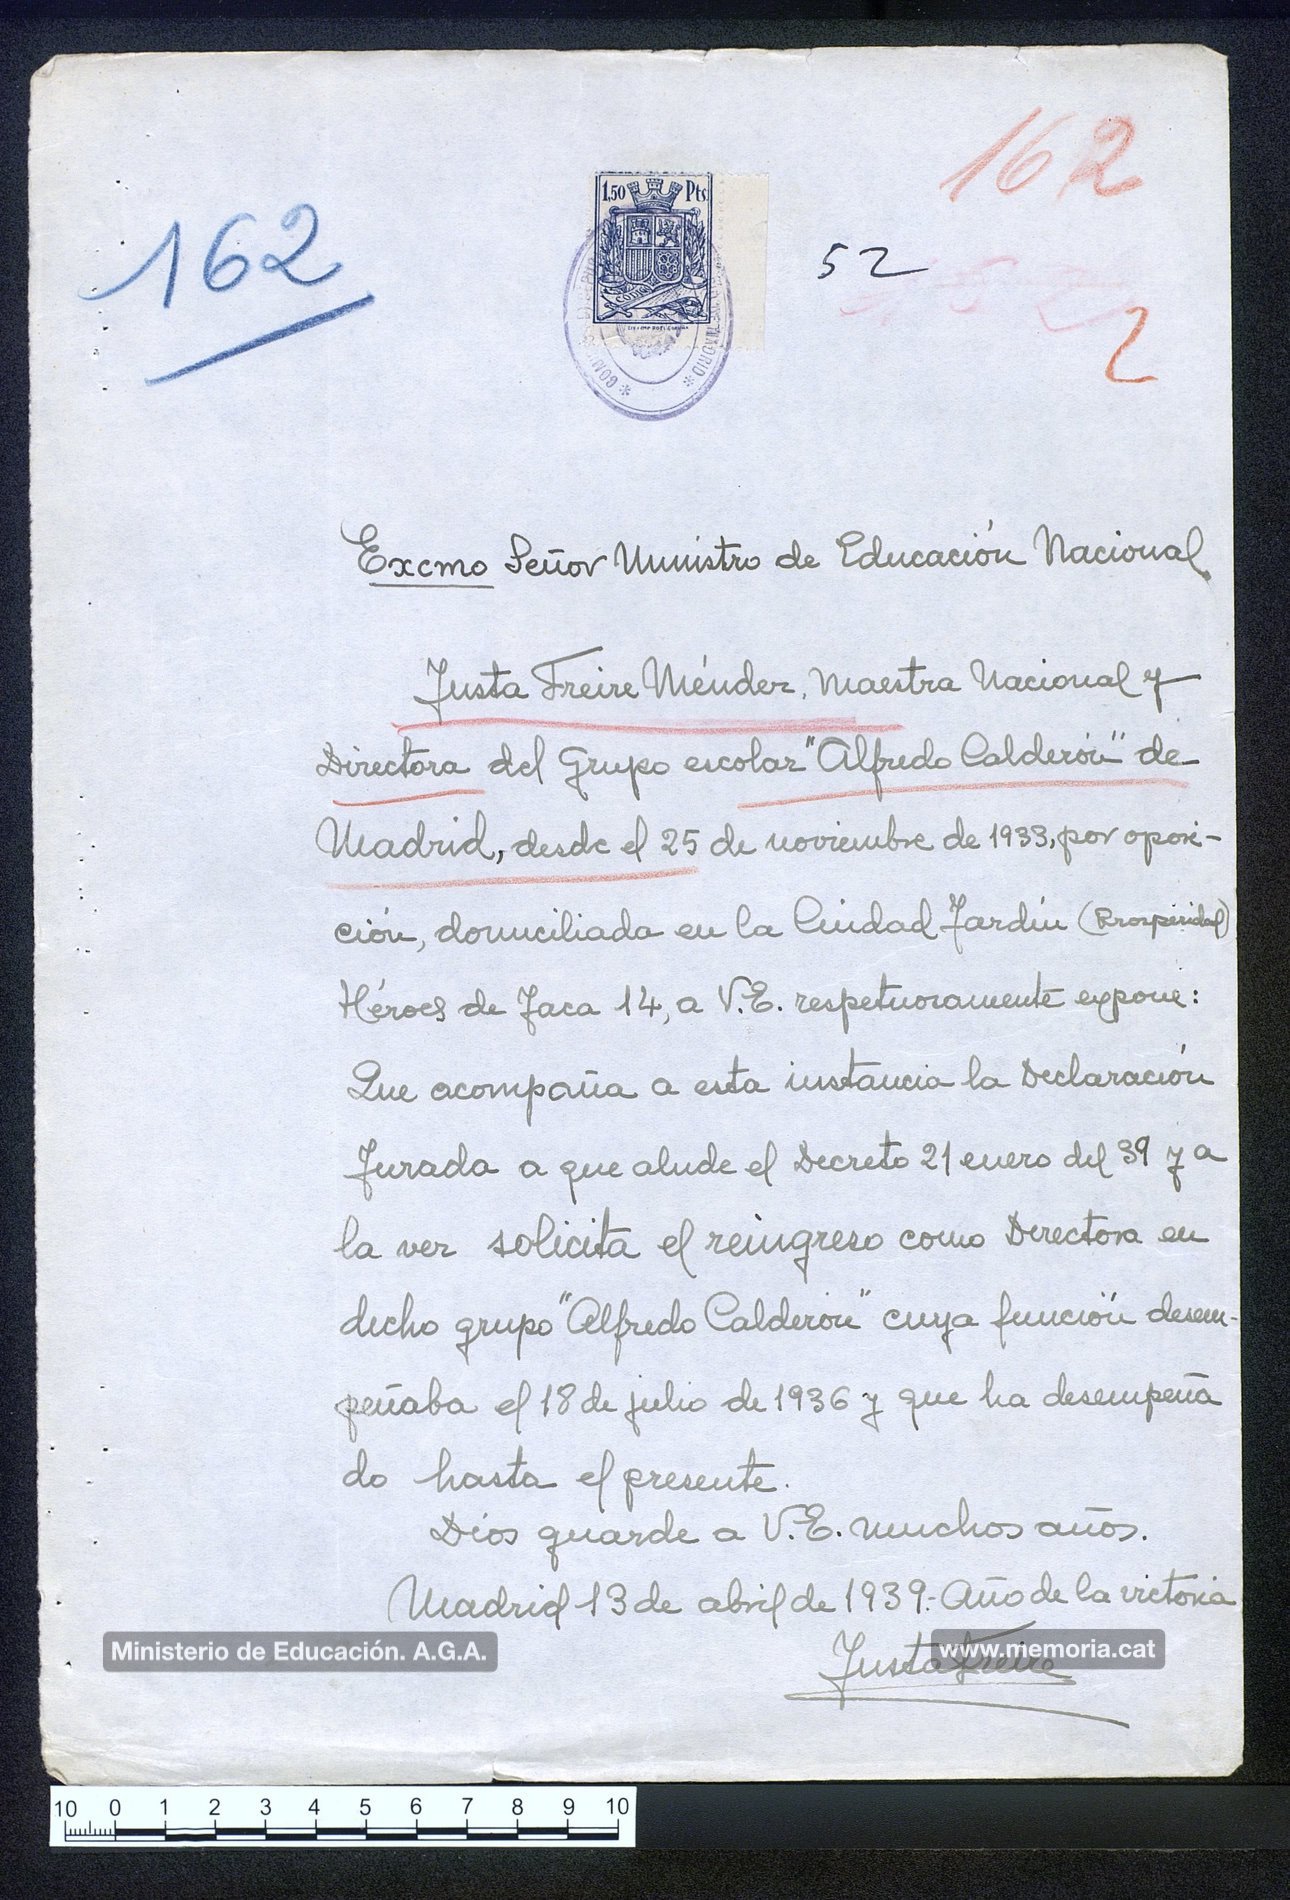 162
162
1,50 Pts.
52
2
MADRID
Excmo Señor Ministro de Educación Nacional.
Justa Freire Méndez, Maestra Nacional y
Directora del Grupo escolar "Alfredo Calderón" de
Madrid, desde el 25 de noviembre de 1933, por oposi-
ción, domiciliada en la Ciudad Jardín (Prosperidad)
Héroes de Jaca 14, a V.E. respetuosamente expone:
Que acompaña a esta instancia la Declaración
Jurada a que alude el Decreto 21 enero del 39 y a
la vez solicita el reingreso como Directora en
dicho grupo "Alfredo Calderón" cuya función desem-
peñaba el 18 de julio de 1936 y que ha desempeña
do hasta el presente.
Dios guarde a V.E. muchos años.
Madrid 13 de abril de 1939.- Año de la victoria
Justa Freire
Ministerio de Educación. A.G.A.
www.memoria.cat
10 0 1 2 3 4 5 6 7 8 9 10